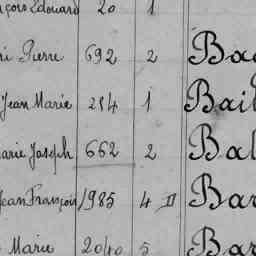 nçois Edouard 20 1
ri Pierre 692 2 Ba
Jean Marie 284 1 Bail
arie Joseph 662 2 Bal
Jean François 1985 4 II Bar
Marie 2040 5 Bar